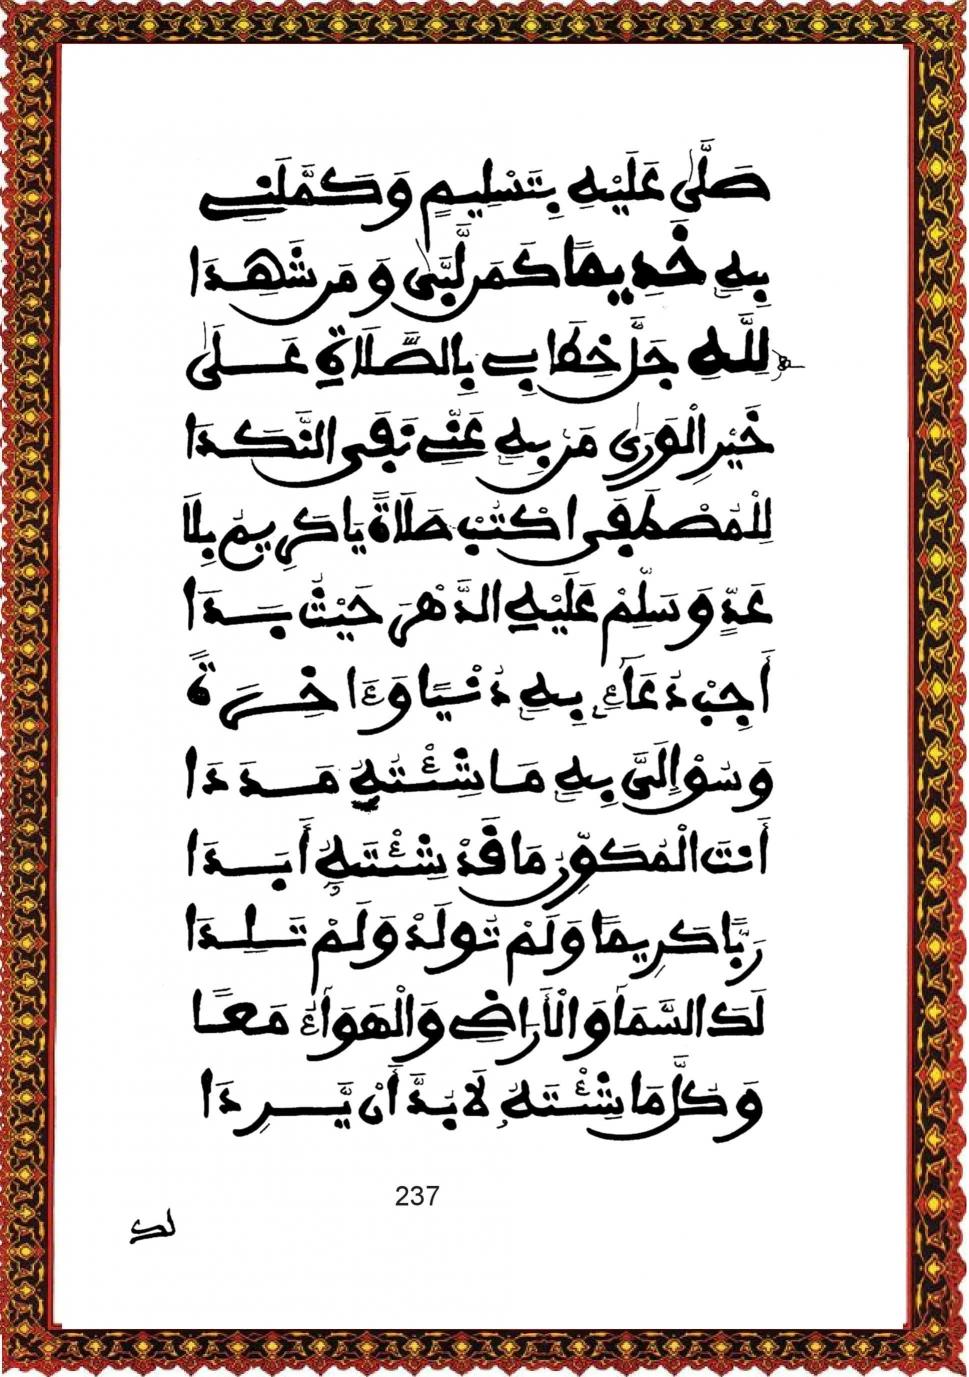 صَلَّى عَلَيْهِ بِتَسْلِيمٍ وَكَمَّلَنِي
بِهِ خَدِيمًا كَمَن لَّبَّى وَمَن شَهِدَا
لِلَّهِ جَلَّ خِطَابِي بِالصَّلَاةِ عَلَى
خَيْرِ الْوَرَى مَن بِهِ عَنِّي نَفَى النَّكَدَا
لِلْمُصْطَفَى اكْتُبْ صَلَاةً يَا كَرِيمُ بِلَا
عَدٍّ وَسَلِّمْ عَلَيْهِ الدَّهْرَ حَيْثُ بَدَا
أَجِبْ دُعَآءِ بِهِ دُنْيًا وَءَاخِرَةً
وَسُقْ إِلَىَّ بِهِ مَا شِئْتَهُ مَدَدَا
أَنتَ الْمُكَوِّنُ مَا قَدْ شِئْتَهُ أَبَدَا
رَبًّا كَرِيمًا وَلَمْ تُولَدْ وَلَمْ تَلِدَا
لَكَ السَّمَا وَالْأَرَاضِي وَالْهَوَآءُ مَعًا
وَكُلُّ مَا شِئْتَهُ لَا بُدَّ أَن يَّرِدَا
237
لك